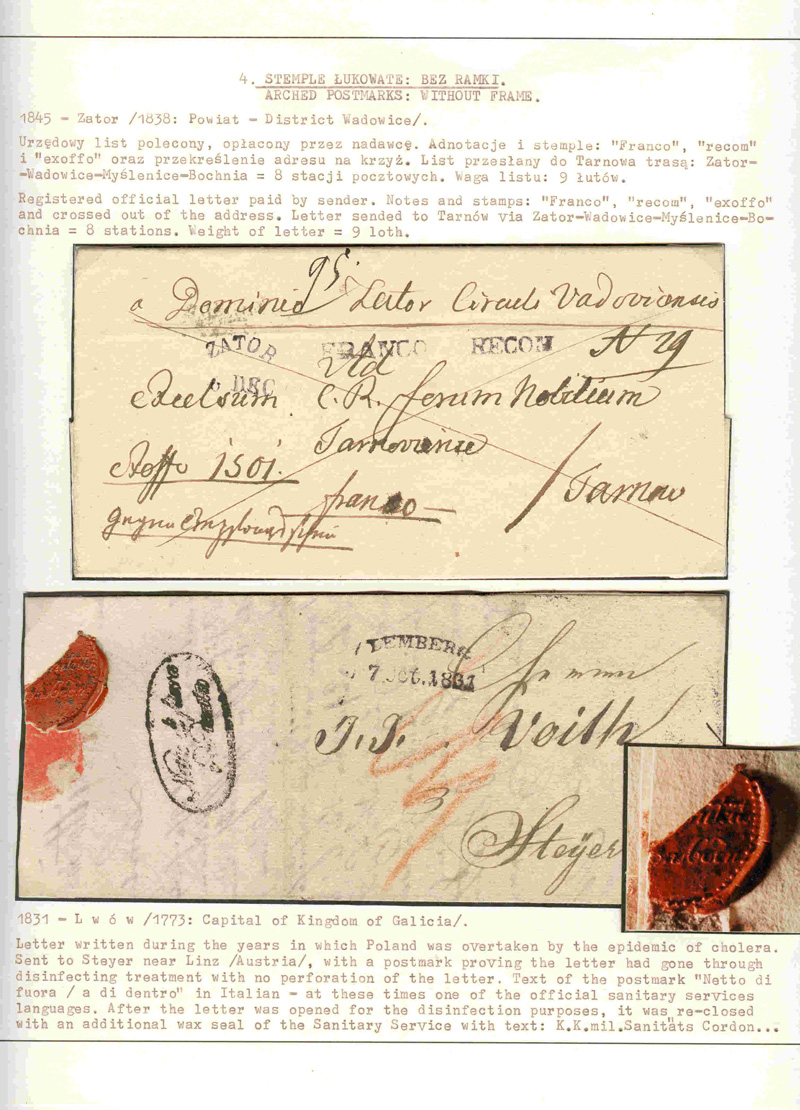 4. STEMPLE ŁUKOWATE: BEZ RAMKI.
ARCHED POSTMARKS: WITHOUT FRAME.
1845 - Zator /1838: Powiat - District Wadowice/.
Urzędowy list polecony, opłacony przez nadawcę. Adnotacje i stemple: "Franco", "recom"
i "exoffo" oraz przekreślenie adresu na krzyż. List przesłany do Tarnowa trasą: Zator-
-Wadowice-Myślenice-Bochnia = 8 stacji pocztowych. Waga listu: 9 łutów.
Registered official letter paid by sender. Notes and stamps: "Franco", "recom", "exoffo"
and crossed out of the address. Letter sended to Tarnów via Zator-Wadowice-Myślenice-Bo-
chnia = 8 stations. Weight of letter = 9 loth.
95.
a Dominio Zator Circuli Vadoviensis
ZATOR FRANCO RECOM N 29
DEC
Excelsum C.R. forum Nobilium
Tarnoviense
Exoffo 1501.
franco
Tarnow
LEMBERG
7 Oct. 1831
Netto di fuora
J. J. Voith
3
Steyer
1831 - L w ó w /1773: Capital of Kingdom of Galicia/.
Letter written during the years in which Poland was overtaken by the epidemic of cholera.
Sent to Steyer near Linz /Austria/, with a postmark proving the letter had gone through
disinfecting treatment with no perforation of the letter. Text of the postmark "Netto di
fuora / a di dentro" in Italian - at these times one of the official sanitary services
languages. After the letter was opened for the disinfection purposes, it was re-closed
with an additional wax seal of the Sanitary Service with text: K.K.mil.Sanitäts Cordon...